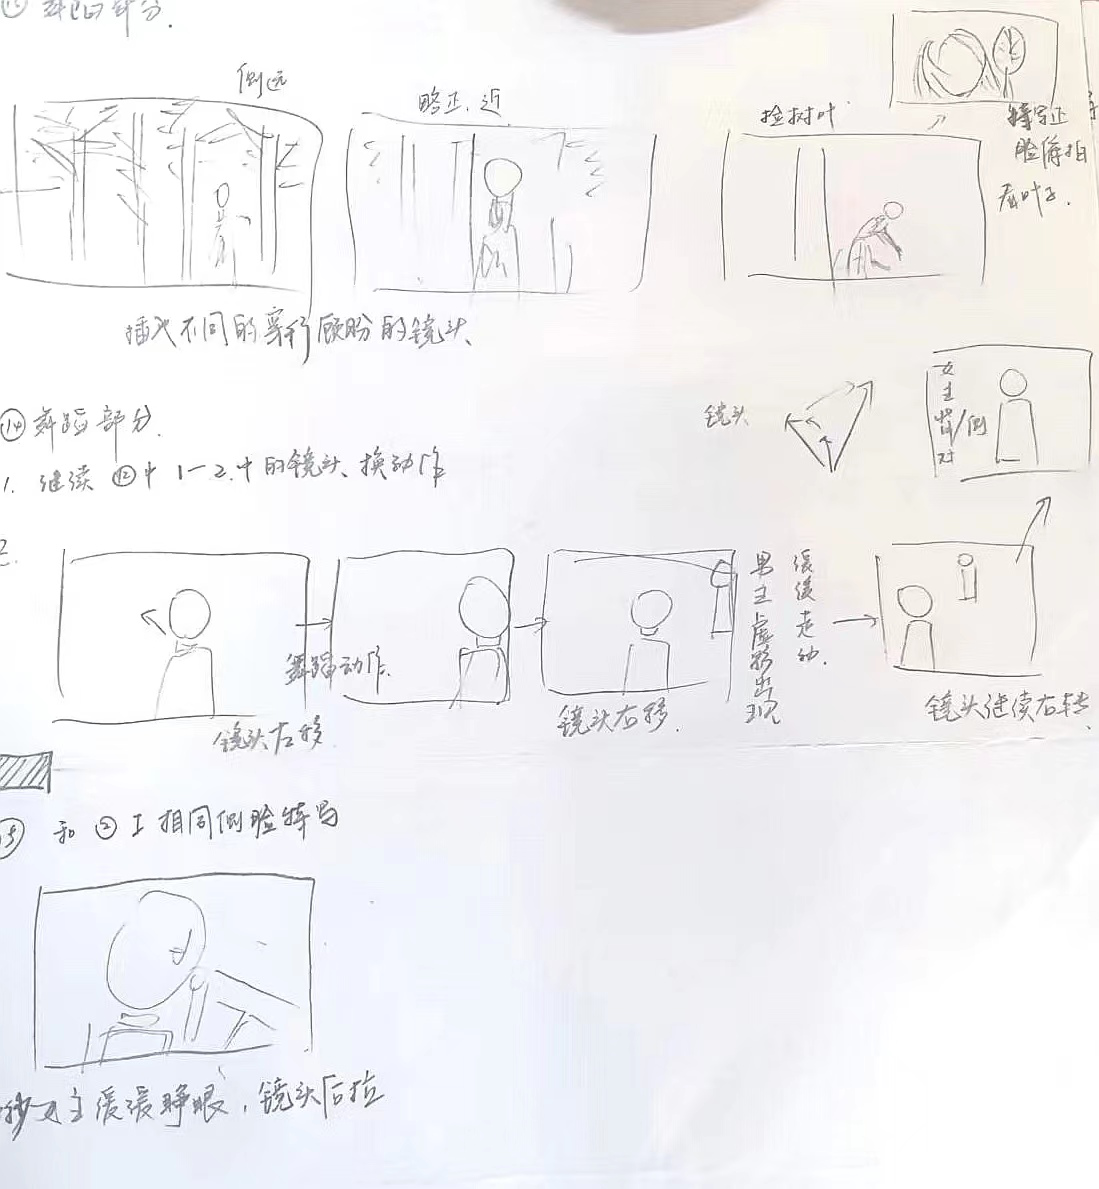 部分.
侧远
略正、近
捡树叶
特写正
脸俯拍
看叶子.
插入不同的穿行顾盼的镜头、
⑭舞蹈部分.
1. 继续⑫中1-2.中的镜头、换动作
镜头
女主
/侧
对
2.
舞蹈动作.
镜头左移
镜头右移.
男主虚影出现
缓缓走动.
镜头继续右转.
⑮ 和②工相同侧脸特写
女主缓缓睁眼,镜头后拉